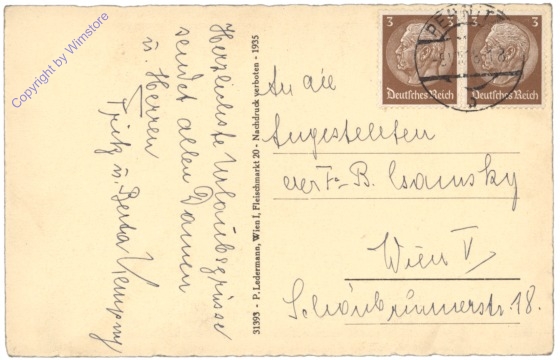 Copyright by Wimstore
Herzlichste Urlaubsgrüsse
sendet allen Damen
u. Herren
Fritz u. Berta Kempny
31393 - P. Ledermann, Wien I, Fleischmarkt 20 - Nachdruck verboten - 1935
3 3
Deutsches Reich Deutsches Reich
An die
Angestellten
der Fa. B.
Wien V
Schönbrunnerstr. 18.